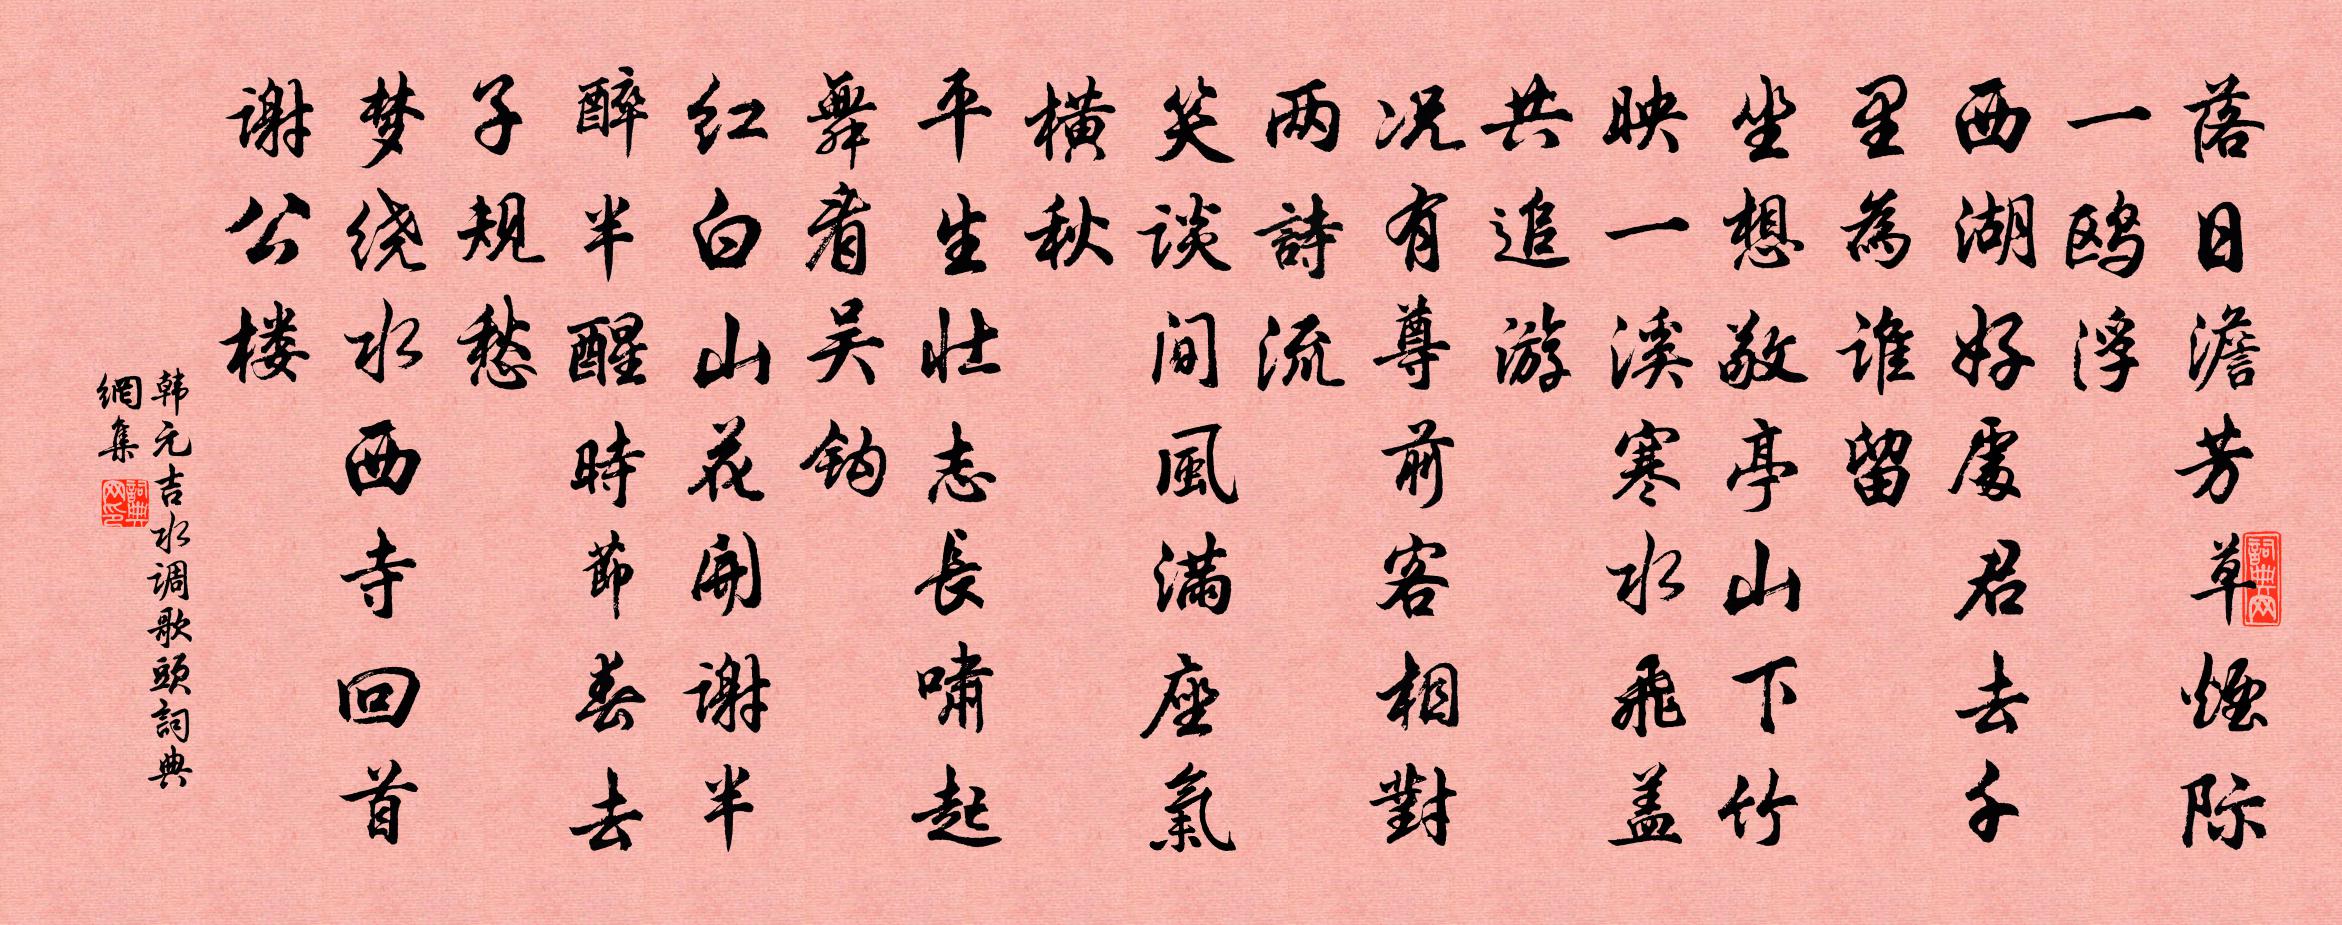 落日澹芳草煙际
一鸥浮
西湖好處君去千
里為谁留
坐想敬亭山下竹
映一溪寒水飛盖
共追游
况有尊前客相對
两詩流
笑谈间風满座氣
横秋
平生壮志長啸起
舞看吴钩
红白山花開谢半
醉半醒時節春去
子規愁
梦绕水西寺回首
谢公楼
韩元吉水调歌頭詞典
網集
詞典网
詞典网印